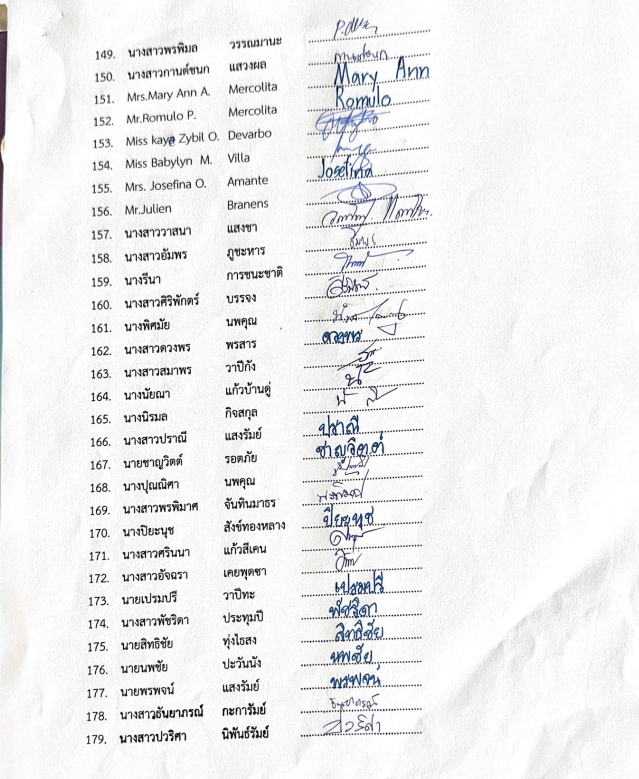 149. นางสาวพรพิมล วรรณมานะ
150. นางสาวกานต์ชนก แสวงผล กานต์ชนก
151. Mrs.Mary Ann A. Mercolita Mary Ann
152. Mr.Romulo P. Mercolita Romulo
153. Miss kaye Zybil O. Devarbo
154. Miss Babylyn M. Villa
155. Mrs. Josefina O. Amante Josefina
156. Mr.Julien Branens
157. นางสาววาสนา แสงชา
158. นางสาวอัมพร ภูชะหาร อัมพร
159. นางรีนา การชนะชาติ
160. นางสาวศิริพักตร์ บรรจง
161. นางพิศมัย นพคุณ
162. นางสาวดวงพร พรสาร ดวงพร
163. นางสาวสมาพร วาปีกัง
164. นางนัยณา แก้วบ้านดู่
165. นางนิรมล กิจสกุล
166. นางสาวปราณี แสงรัมย์ ปราณี
167. นายชาญวิตต์ รอตภัย ชาญวิตต์
168. นางปุณณิศา นพคุณ
169. นางสาวพรพิมาศ จันทินมาธร
170. นางปิยะนุช สังข์ทองหลาง ปิยะนุช
171. นางสาวศรินนา แก้วสีเคน
172. นางสาวอัจฉรา เคยพุดซา
173. นายเปรมปรี วาปีทะ เปรมปรี
174. นางสาวพัชริดา ประทุมปี พัชริดา
175. นายสิทธิชัย ทุ่งไธสง สิทธิชัย
176. นายนพชัย ปะวันนัง นพชัย
177. นายพรพจน์ แสงรัมย์ พรพจน์
178. นางสาวธันยาภรณ์ กะการัมย์ ธันยาภรณ์
179. นางสาวปวริศา นิพันธ์รัมย์ ปวริศา